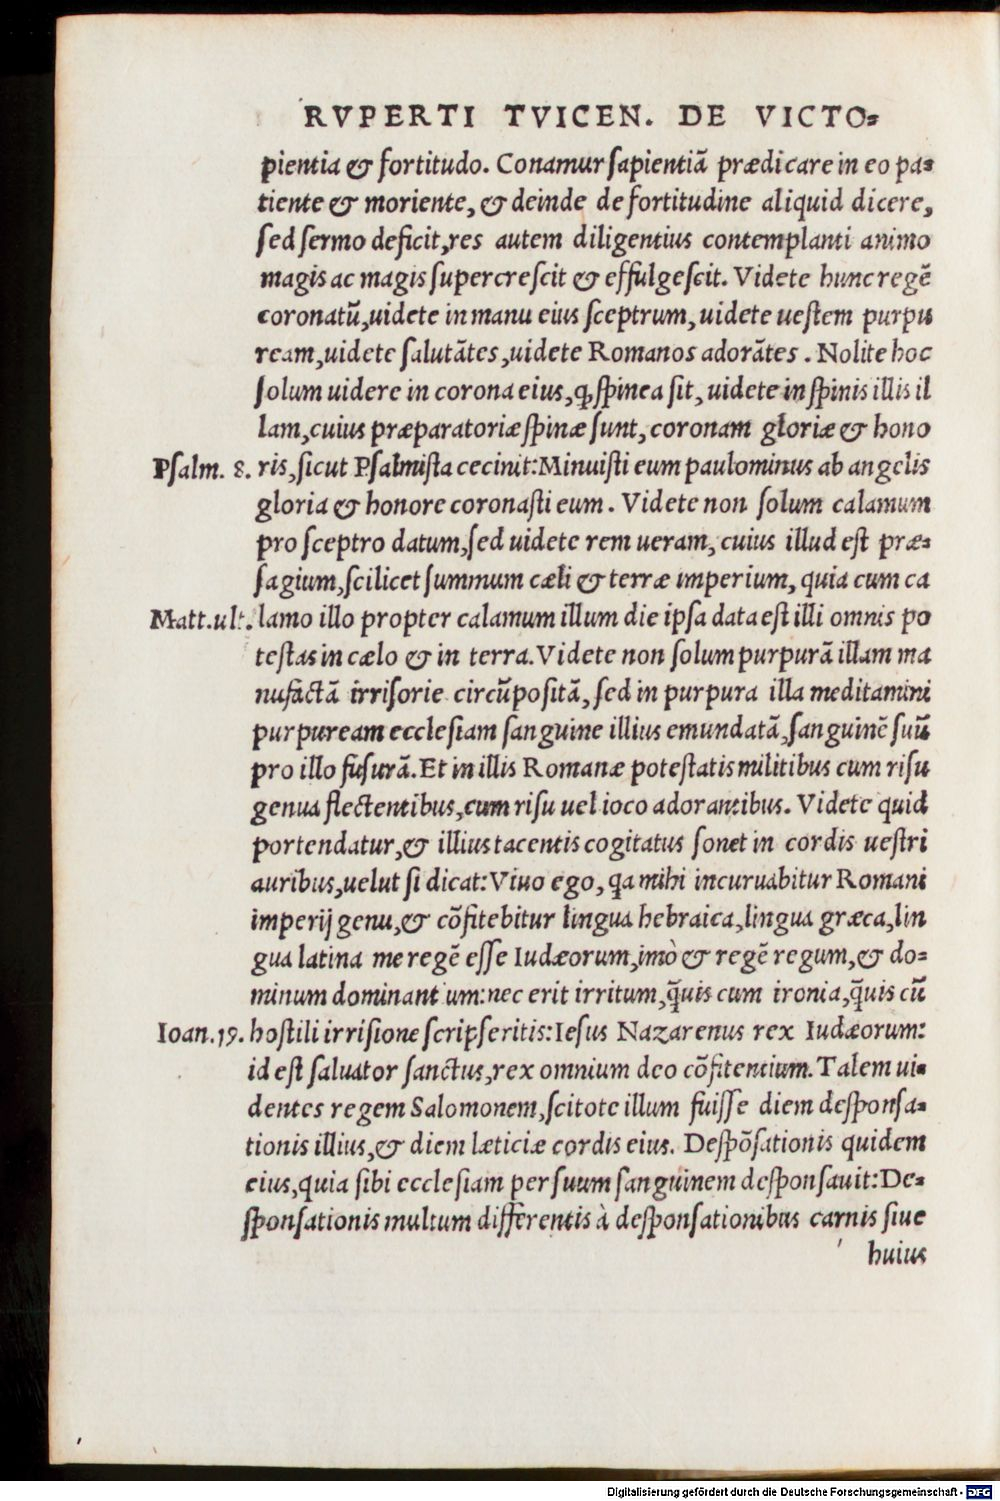 RVPERTI TVICEN. DE VICTO=
pientia & fortitudo. Conamur sapientiā prædicare in eo pa=
tiente & moriente, & deinde de fortitudine aliquid dicere,
sed sermo deficit, res autem diligentius contemplanti animo
magis ac magis supercrescit & effulgescit. Videte hunc regē
coronatū, uidete in manu eius sceptrum, uidete uestem purpu
ream, uidete salutātes, uidete Romanos adorātes. Nolite hoc
solum uidere in corona eius, ꝙ spinea sit, uidete in spinis illis il
lam, cuius præparatoriæ spinæ sunt, coronam gloriæ & hono
Psalm. 8. ris, sicut Psalmista cecinit: Minuisti eum paulominus ab angelis
gloria & honore coronasti eum. Videte non solum calamum
pro sceptro datum, sed uidete rem ueram, cuius illud est præ=
sagium, scilicet summum cæli & terræ imperium, quia cum ca
Matt.ult. lamo illo propter calamum illum die ipsa data est illi omnis po
testas in cælo & in terra. Videte non solum purpurā illam ma
nufactā irrisorie circūpositā, sed in purpura illa meditamini
purpuream ecclesiam sanguine illius emundatā, sanguinē suū
pro illo fusurā. Et in illis Romanæ potestatis militibus cum risu
genua flectentibus, cum risu uel ioco adorantibus. Videte quid
portendatur, & illius tacentis cogitatus sonet in cordis uestri
auribus, uelut si dicat: Viuo ego, qa mihi incuruabitur Romani
imperij genu, & cōfitebitur lingua hebraica, lingua græca, lin
gua latina me regē esse Iudæorum, imò & regē regum, & do=
minum dominantium: nec erit irritum, q̄uis cum ironia, q̄uis cū
Ioan.19. hostili irrisione scripseritis: Iesus Nazarenus rex Iudæorum:
id est saluator sanctus, rex omnium deo cōfitentium. Talem ui=
dentes regem Salomonem, scitote illum fuisse diem desponsa=
tionis illius, & diem læticiæ cordis eius. Despōsationis quidem
eius, quia sibi ecclesiam per suum sanguinem desponsauit: De=
sponsationis multum differentis à desponsationibus carnis siue
huius
Digitalisierung gefördert durch die Deutsche Forschungsgemeinschaft - DFG